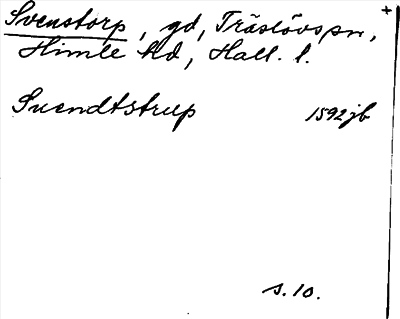 Svenstorp, gd, Träslövs sn, +
Himle hd, Hall. l.
Suendtstrup 1592 jb
s. 10.